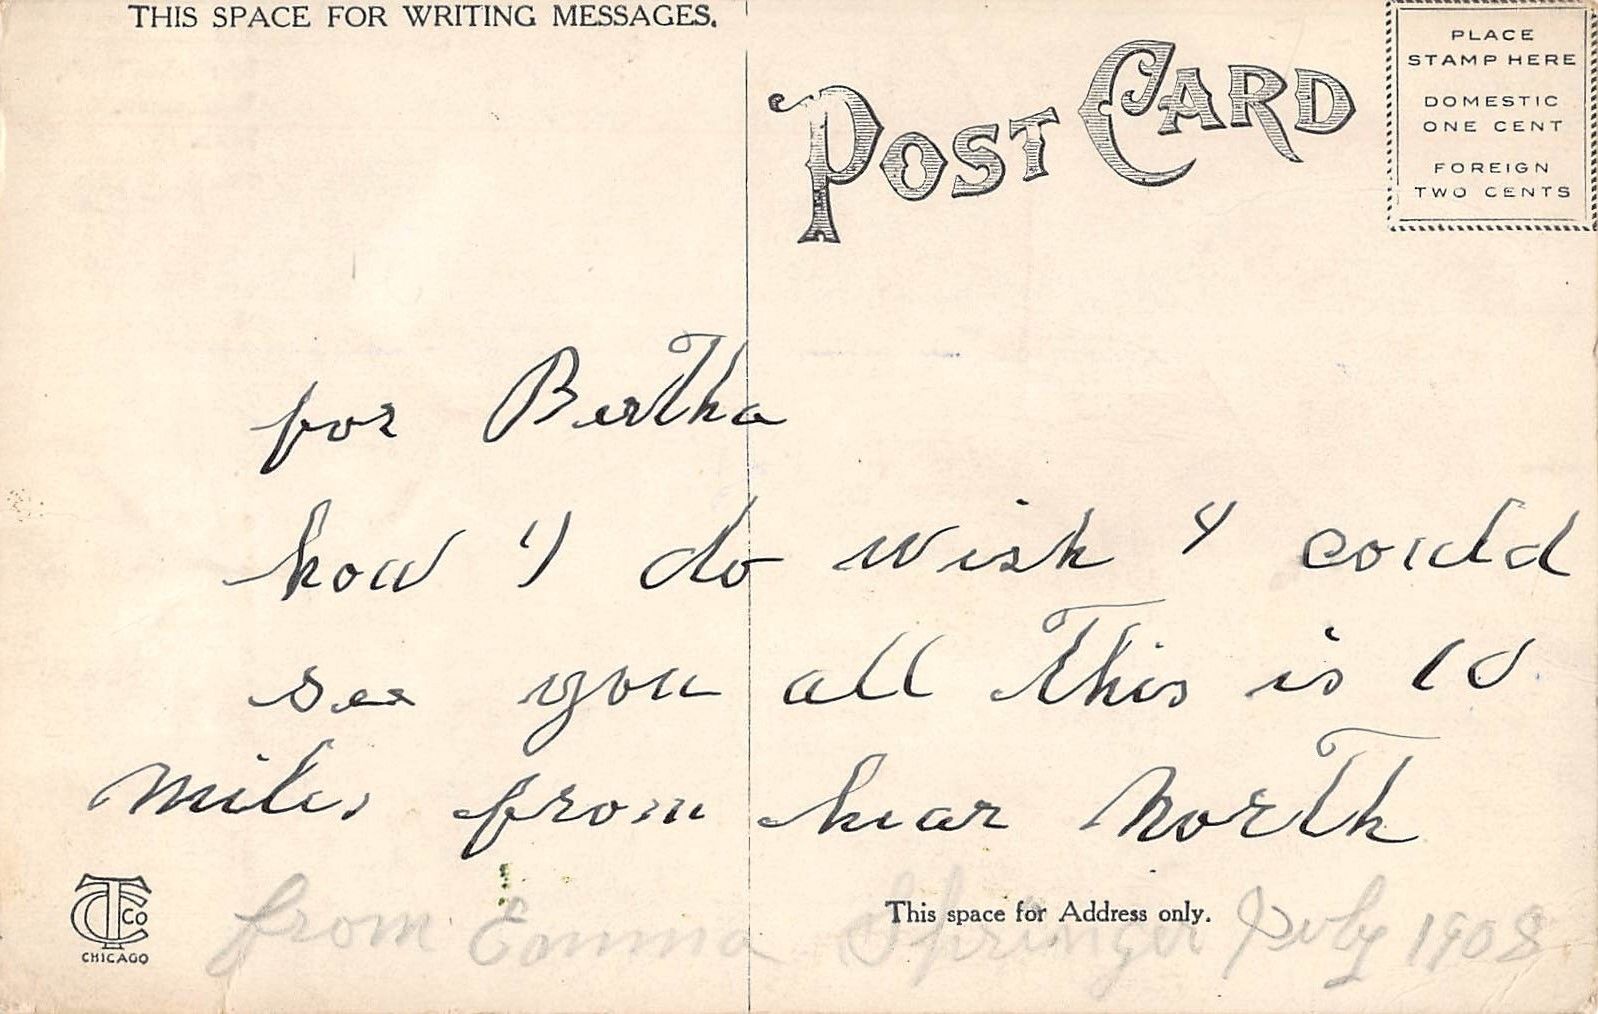 THIS SPACE FOR WRITING MESSAGES.
POST CARD
PLACE
STAMP HERE
DOMESTIC
ONE CENT
FOREIGN
TWO CENTS
for Bertha
how I do wish I could
see you all This is 10
miles from hear North
This space for Address only.
from Emma Springer July 1908
CTCo
CHICAGO